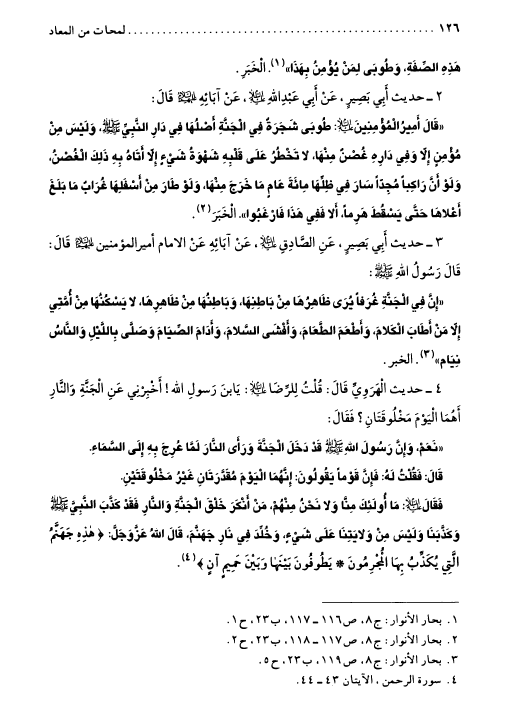 ١٢٦ ........................................................ لمحات من المعاد
هَذِهِ الصِّفَةِ، وَطُوبَى لِمَنْ يُؤْمِنُ بِهَذَا»(١). الْخَبَرَ.
٢ ـ حديث أَبِي بَصِيرٍ، عَنْ أَبِي عَبْدِاللهِ ﵇، عَنْ آبَائِهِ ﵈ قَالَ:
«قَالَ أَمِيرُ الْمُؤْمِنِينَ ﵇: طُوبَى شَجَرَةٌ فِي الْجَنَّةِ أَصْلُهَا فِي دَارِ النَّبِيِّ ﷺ، وَلَيْسَ مِنْ
مُؤْمِنٍ إِلَّا وَفِي دَارِهِ غُصْنٌ مِنْهَا، لَا تَخْطُرُ عَلَى قَلْبِهِ شَهْوَةُ شَيْءٍ إِلَّا أَتَاهُ بِهِ ذَلِكَ الْغُصْنُ،
وَلَوْ أَنَّ رَاكِباً مُجِدّاً سَارَ فِي ظِلِّهَا مِائَةَ عَامٍ مَا خَرَجَ مِنْهَا، وَلَوْ طَارَ مِنْ أَسْفَلِهَا غُرَابٌ مَا بَلَغَ
أَعْلَاهَا حَتَّى يَسْقُطَ هَرِماً، أَلَا فَفِي هَذَا فَارْغَبُوا». الْخَبَرَ(٢).
٣ ـ حديث أَبِي بَصِيرٍ، عَنِ الصَّادِقِ ﵇، عَنْ آبَائِهِ عَنْ الامام أميرالمؤمنين ﵈ قَالَ:
قَالَ رَسُولُ اللهِ ﷺ:
«إِنَّ فِي الْجَنَّةِ غُرَفاً يُرَى ظَاهِرُهَا مِنْ بَاطِنِهَا، وَبَاطِنُهَا مِنْ ظَاهِرِهَا، لَا يَسْكُنُهَا مِنْ أُمَّتِي
إِلَّا مَنْ أَطَابَ الْكَلَامَ، وَأَطْعَمَ الطَّعَامَ، وَأَفْشَى السَّلَامَ، وَأَدَامَ الصِّيَامَ وَصَلَّى بِاللَّيْلِ وَالنَّاسُ
نِيَام»(٣). الخبر.
٤ ـ حديث الْهَرَوِيِّ قَالَ: قُلْتُ لِلرِّضَا ﵇: يَابنَ رَسولِ الله! أَخْبِرْنِي عَنِ الْجَنَّةِ وَالنَّارِ
أَهُمَا الْيَوْمَ مَخْلُوقَتَانِ؟ فَقَالَ:
«نَعَمْ، وَإِنَّ رَسُولَ اللهِ ﷺ قَدْ دَخَلَ الْجَنَّةَ وَرَأَى النَّارَ لَمَّا عُرِجَ بِهِ إِلَى السَّمَاءِ.
قَالَ: فَقُلْتُ لَهُ: فَإِنَّ قَوْماً يَقُولُونَ: إِنَّهُمَا الْيَوْمَ مُقَدَّرَتَانِ غَيْرُ مَخْلُوقَتَيْنِ.
فَقَالَ ﵇: مَا أُولَئِكَ مِنَّا وَلَا نَحْنُ مِنْهُمْ، مَنْ أَنْكَرَ خَلْقَ الْجَنَّةِ وَالنَّارِ فَقَدْ كَذَّبَ النَّبِيَّ ﷺ
وَكَذَّبَنَا وَلَيْسَ مِنْ وَلَايَتِنَا عَلَى شَيْءٍ، وَخُلِّدَ فِي نَارِ جَهَنَّمَ، قَالَ اللهُ عَزَّوَجَلَّ: ﴿هَذِهِ جَهَنَّمُ
الَّتِي يُكَذِّبُ بِهَا الْمُجْرِمُونَ * يَطُوفُونَ بَيْنَهَا وَبَيْنَ حَمِيمٍ آنٍ﴾(٤).
١. بحار الأنوار: ج٨، ص١١٦ ـ ١١٧، ب٢٣، ح١.
٢. بحار الأنوار: ج٨، ص١١٧ ـ ١١٨، ب٢٣، ح٢.
٣. بحار الأنوار: ج٨، ص١١٩، ب٢٣، ح٥.
٤. سورة الرحمن، الآيتان ٤٣ ـ ٤٤.